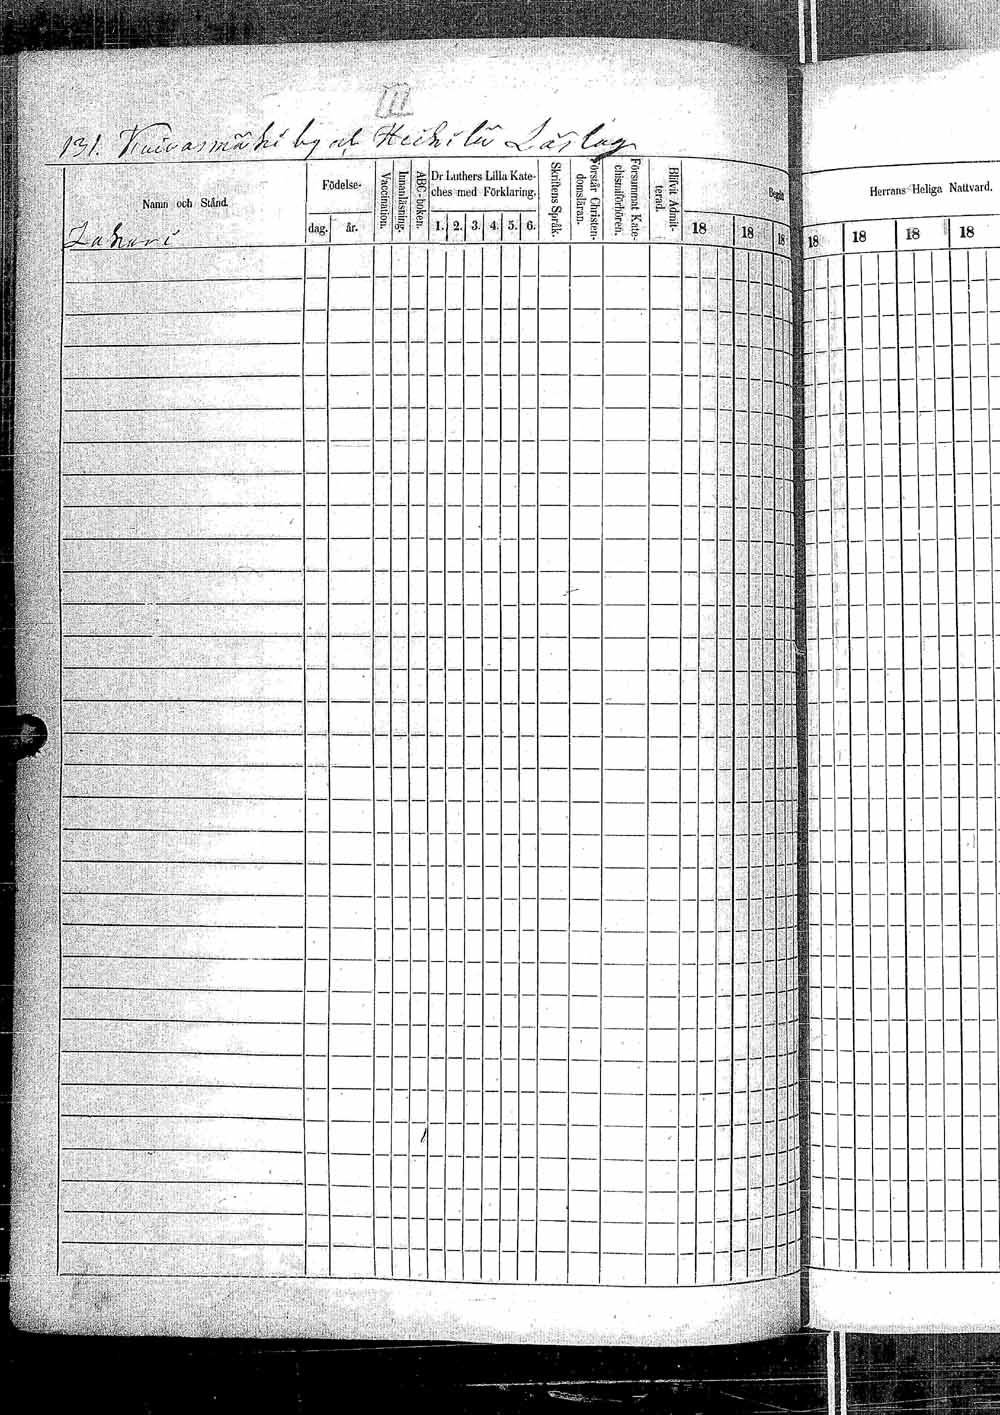 131. Kuivasmäki by o Heikilä Läslag
Namn och Stånd.
Födelse-
dag. år.
Vaccination.
Innanläsning.
ABC-boken.
Dr Luthers Lilla Kate-
ches med Förklaring.
1. 2. 3. 4. 5. 6.
Skriftens Språk.
Förstår Christen-
domsläran.
Försummat Kate-
chismiförhören.
Blifvit Admit-
terad.
Begått
18 18 18
Herrans Heliga Nattvard.
18 18 18 18